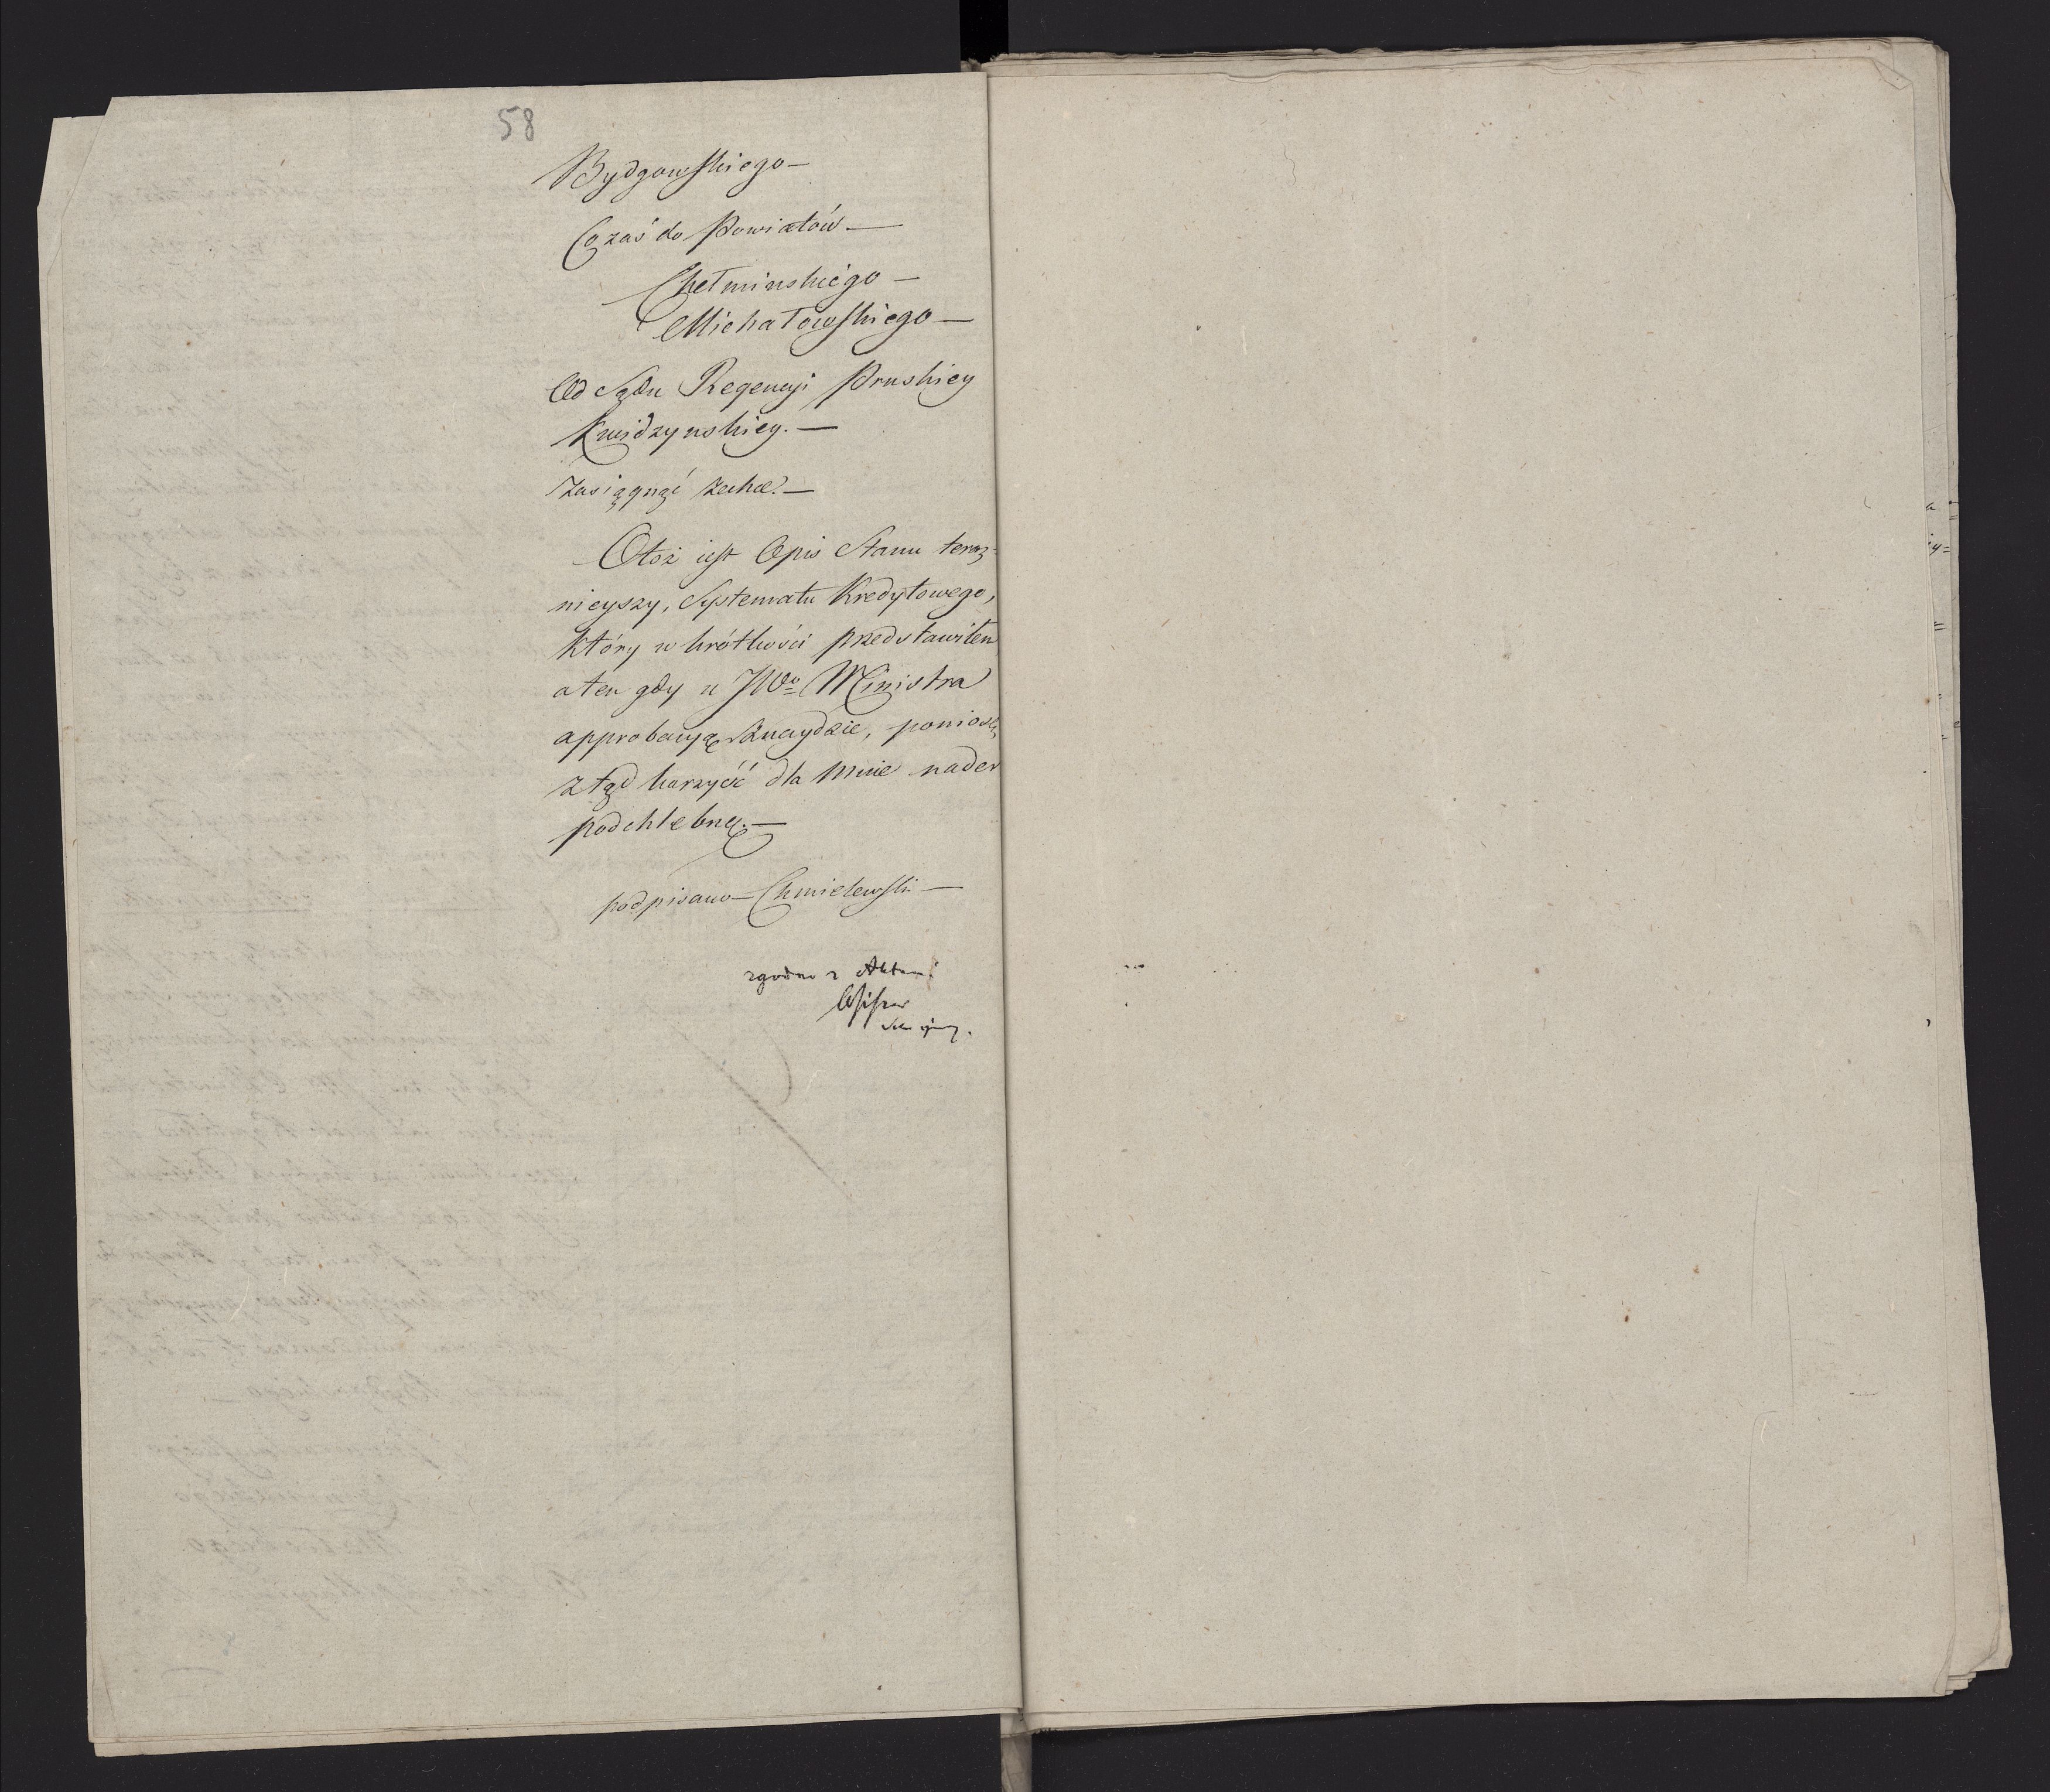 58
Bydgowskiego —
Co zaś do Powiatów. —
Chełminskiégo —
Michałowskiego —
Od Sądu Regencyi Pruskiey
Kwidzynskiey. —
Zasiągnąć zechce. —
Otoż iest Opis Stanu teraz=
nieyszy, Systematu Kredytowego,
który w krótkości przedstawiłem
a ten gdy u JWo Ministra
approbacyą znaydzie, poniosę
ztąd korzyść dla mnie nader
podchlebną. —
podpisano — Chmielewski —
zgodno z Aktami